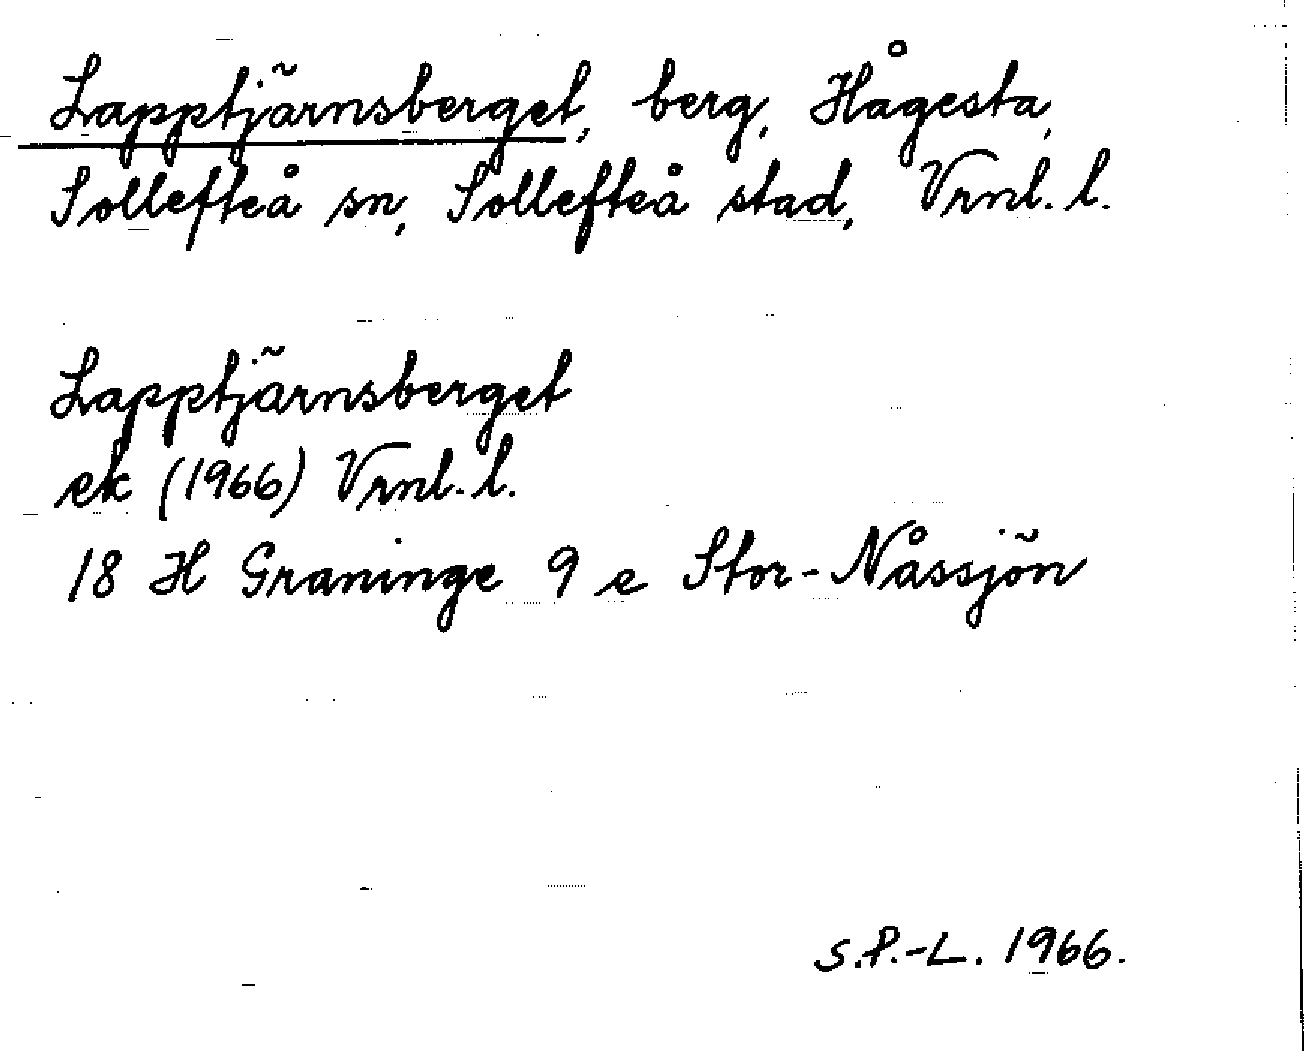 Lapptjärnsberget, berg, Hågesta,
Sollefteå sn, Sollefteå stad, Vrnl. l.
Lapptjärnsberget
ek (1966) Vrnl. l.
18 H Graninge 9 e Stor-Nåssjön
S.P.-L. 1966.